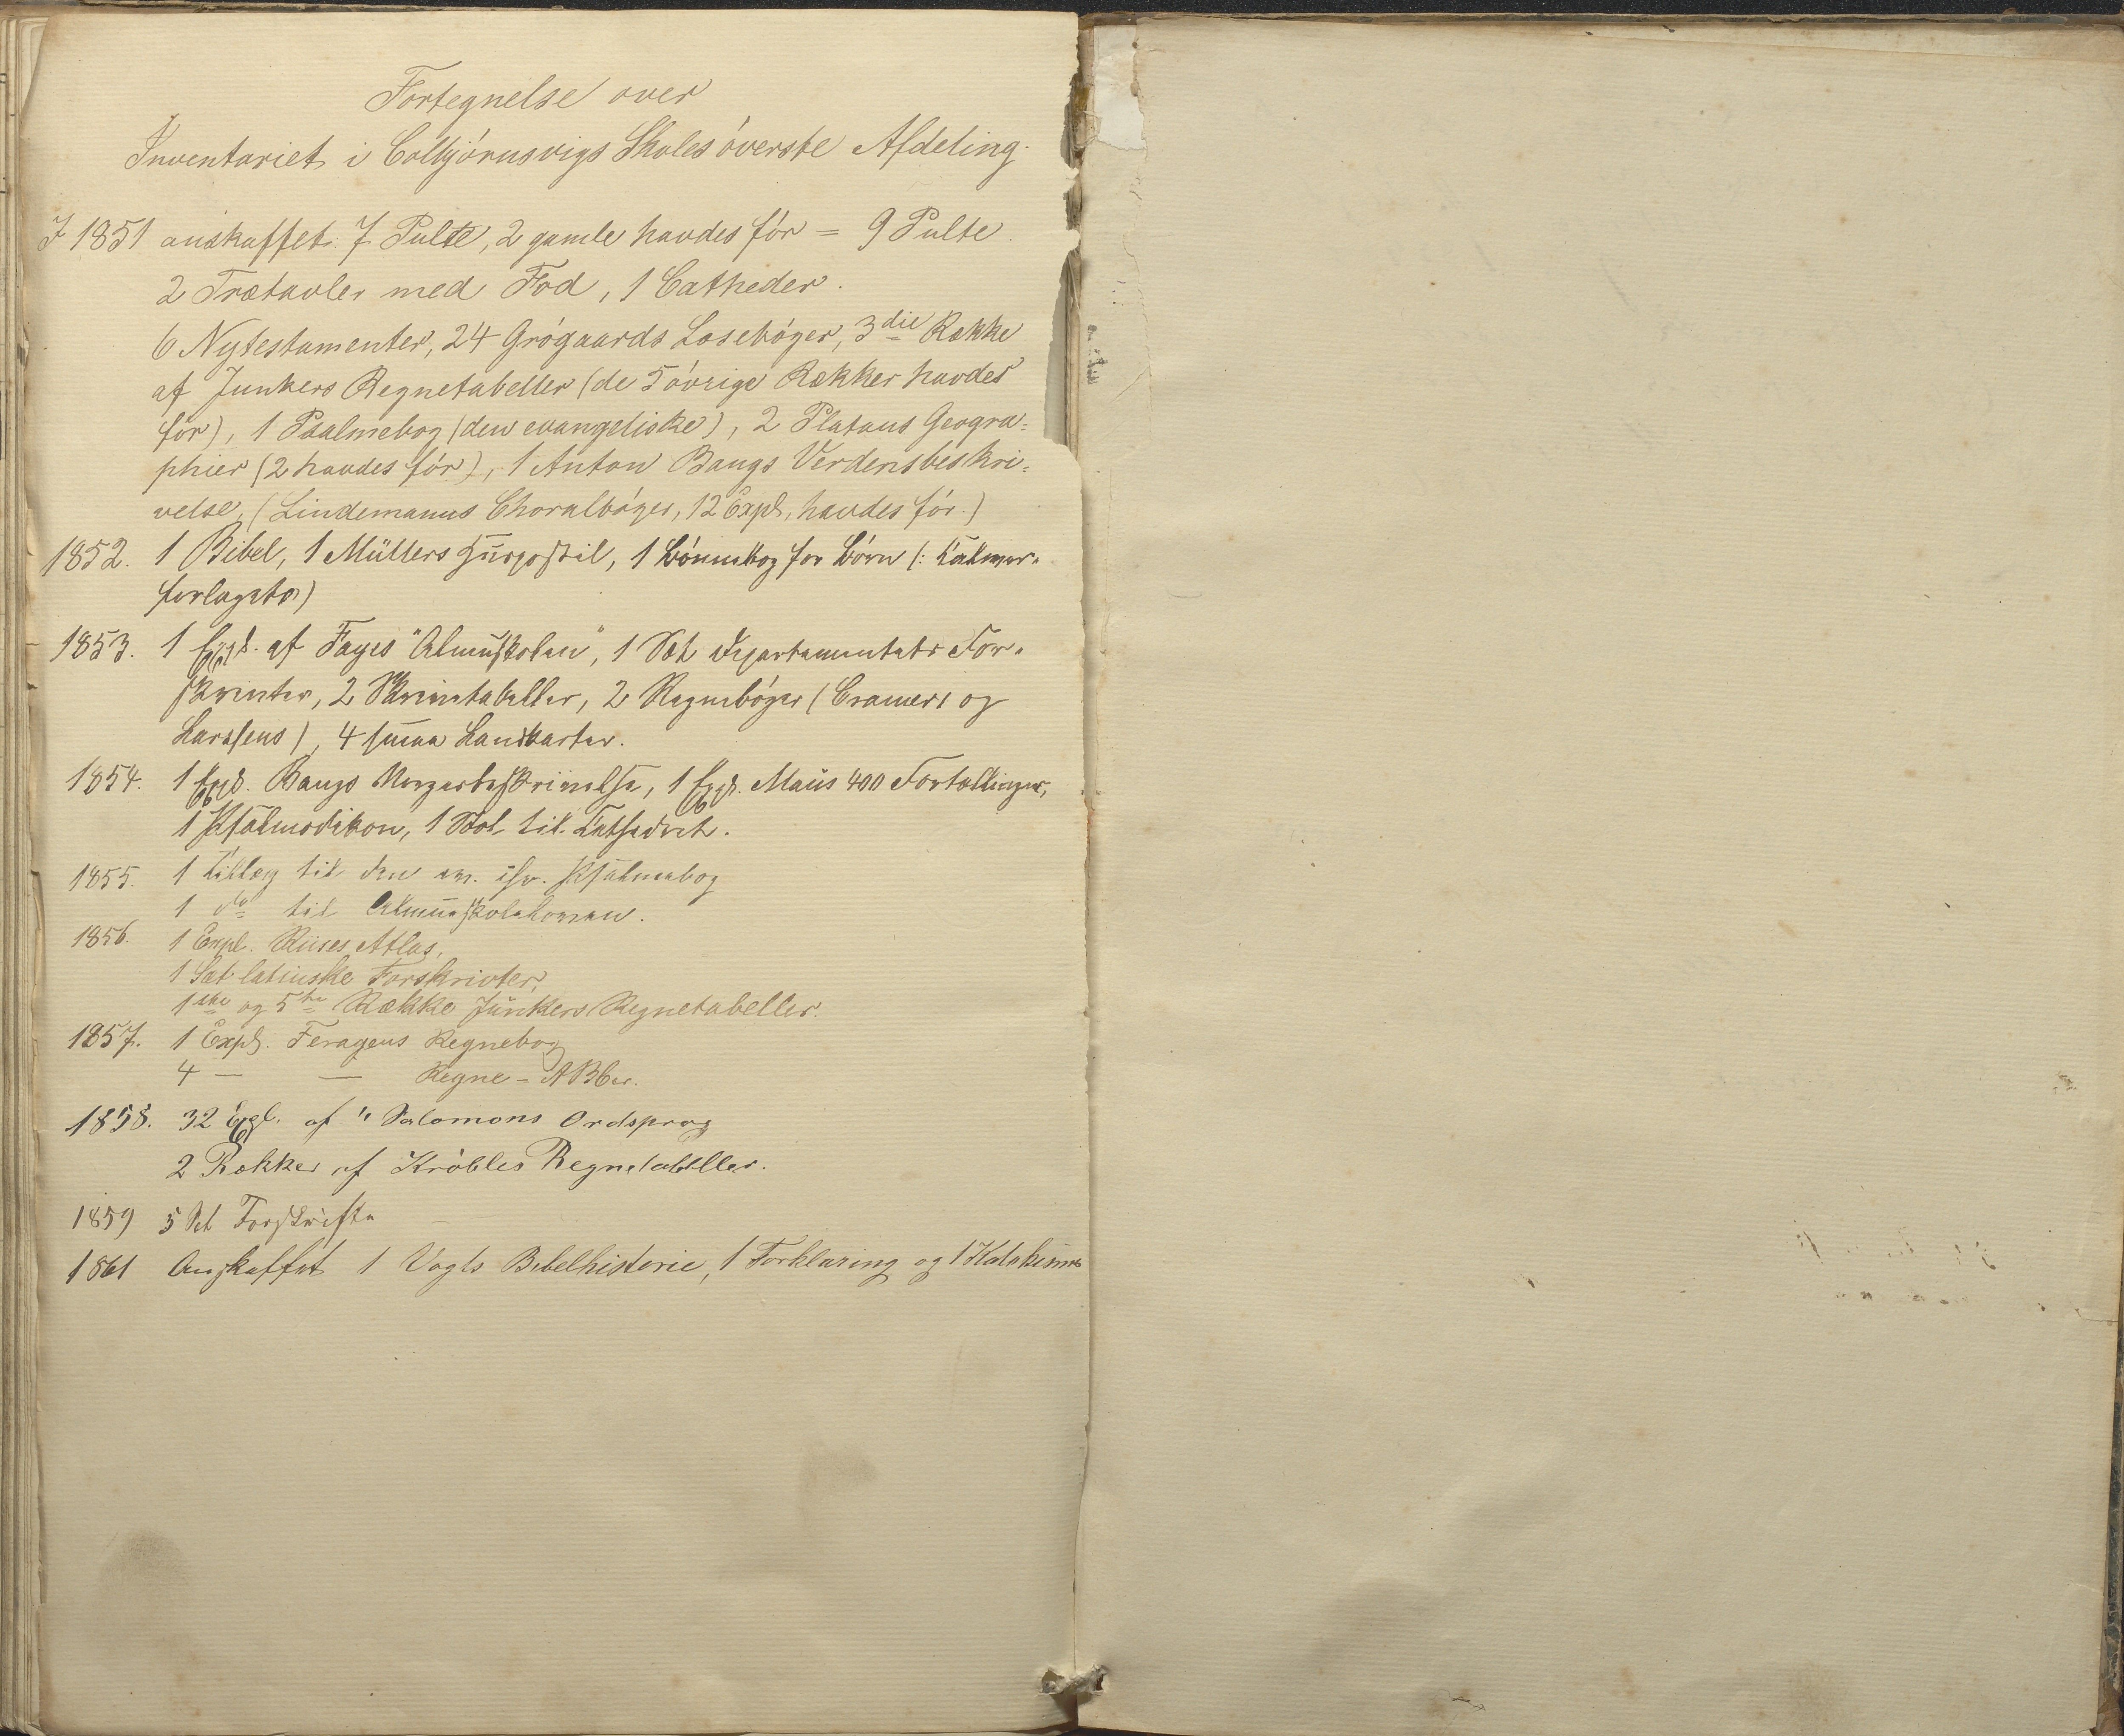 Fortegnelse over
Inventariet i Colbjörnsvigs Skoles överste Afdeling.
I 1851 anskaffet: 7 Pulte, 2 gamle havdes för = 9 Pulte.
2 Trætavler med Fod, 1 Catheder.
6 Nytestamenter, 24 Grögaards Læseböger, 3die Række
af Junkers Regnetabeller (de 5 övrige Rækker havdes
för), 1 Psalmebog (den evangeliske), 2 Platous Geogra=
phier (2 havdes för), 1 Anton Bangs Verdensbeskri=
velse, (Lindemanns Choralböger, 12 Expl, havdes för.)
1852. 1 Bibel, 1 Müllers Huspostil, 1 Bönnebog for Börn (:
forlagets)
1853. 1 Expl. af Fayes "Almuskolen", 1 Sæt Departementets For=
skrivter, 2 Skrivetabeller, 2 Regneböger (Cramers og
Larssens), 4 smaa Landkarter.
1854. 1 Expl. Bangs Norgesbeskrivelse, 1 Expl. Maus 400 Fortællinger,
1 Psalmodikon, 1 Stol til Kathedret.
1855. 1 Tillæg til den ev. Psalmebog
1 do til Almueskoleloven.
1856. 1 Expl. Riises Atlas,
1 Sæt latinske Forskrivter,
1ste og 5te Række Junkers Regnetabeller.
1857. 1 Expl. Feragens Regnebog
4 — — Regne-ABCer.
1858. 32 Expl. af "Salomons Ordsprog
2 Rækker af Kröbles Regnetabeller.
1859 5 Set Forskrifter
1861 Anskaffet 1 Vogts Bibelhistorie, 1 Forklaring og 1 Katekismus